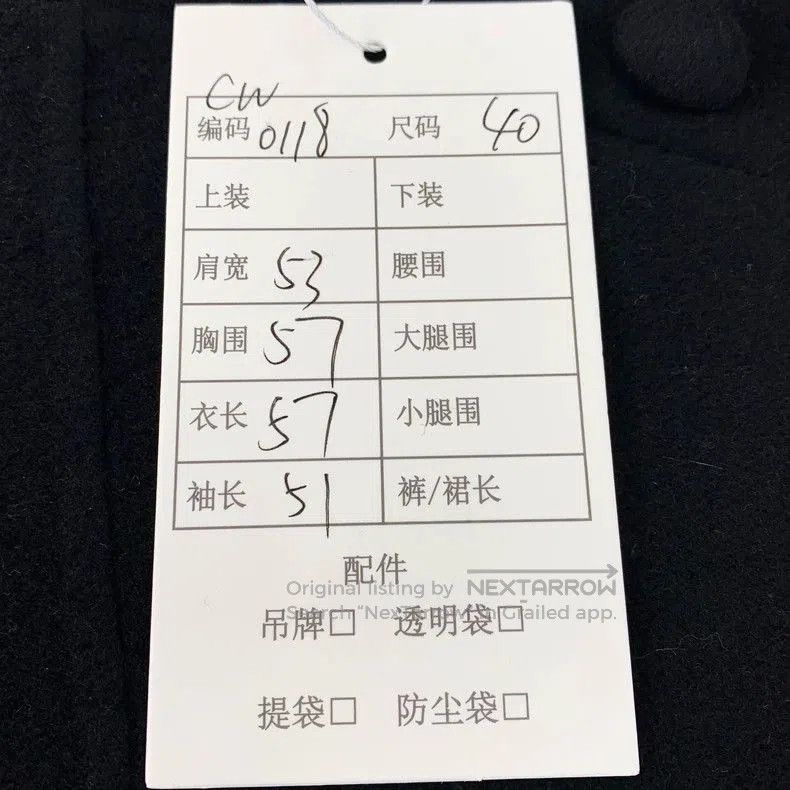 CW
编码 0118 尺码 40
上装 下装
肩宽 53 腰围
胸围 57 大腿围
衣长 57 小腿围
袖长 51 裤/裙长
配件
Original listing by NEXTARROW
Search "NEXTARROW" in Grailed app.
吊牌□ 透明袋□
提袋□ 防尘袋□